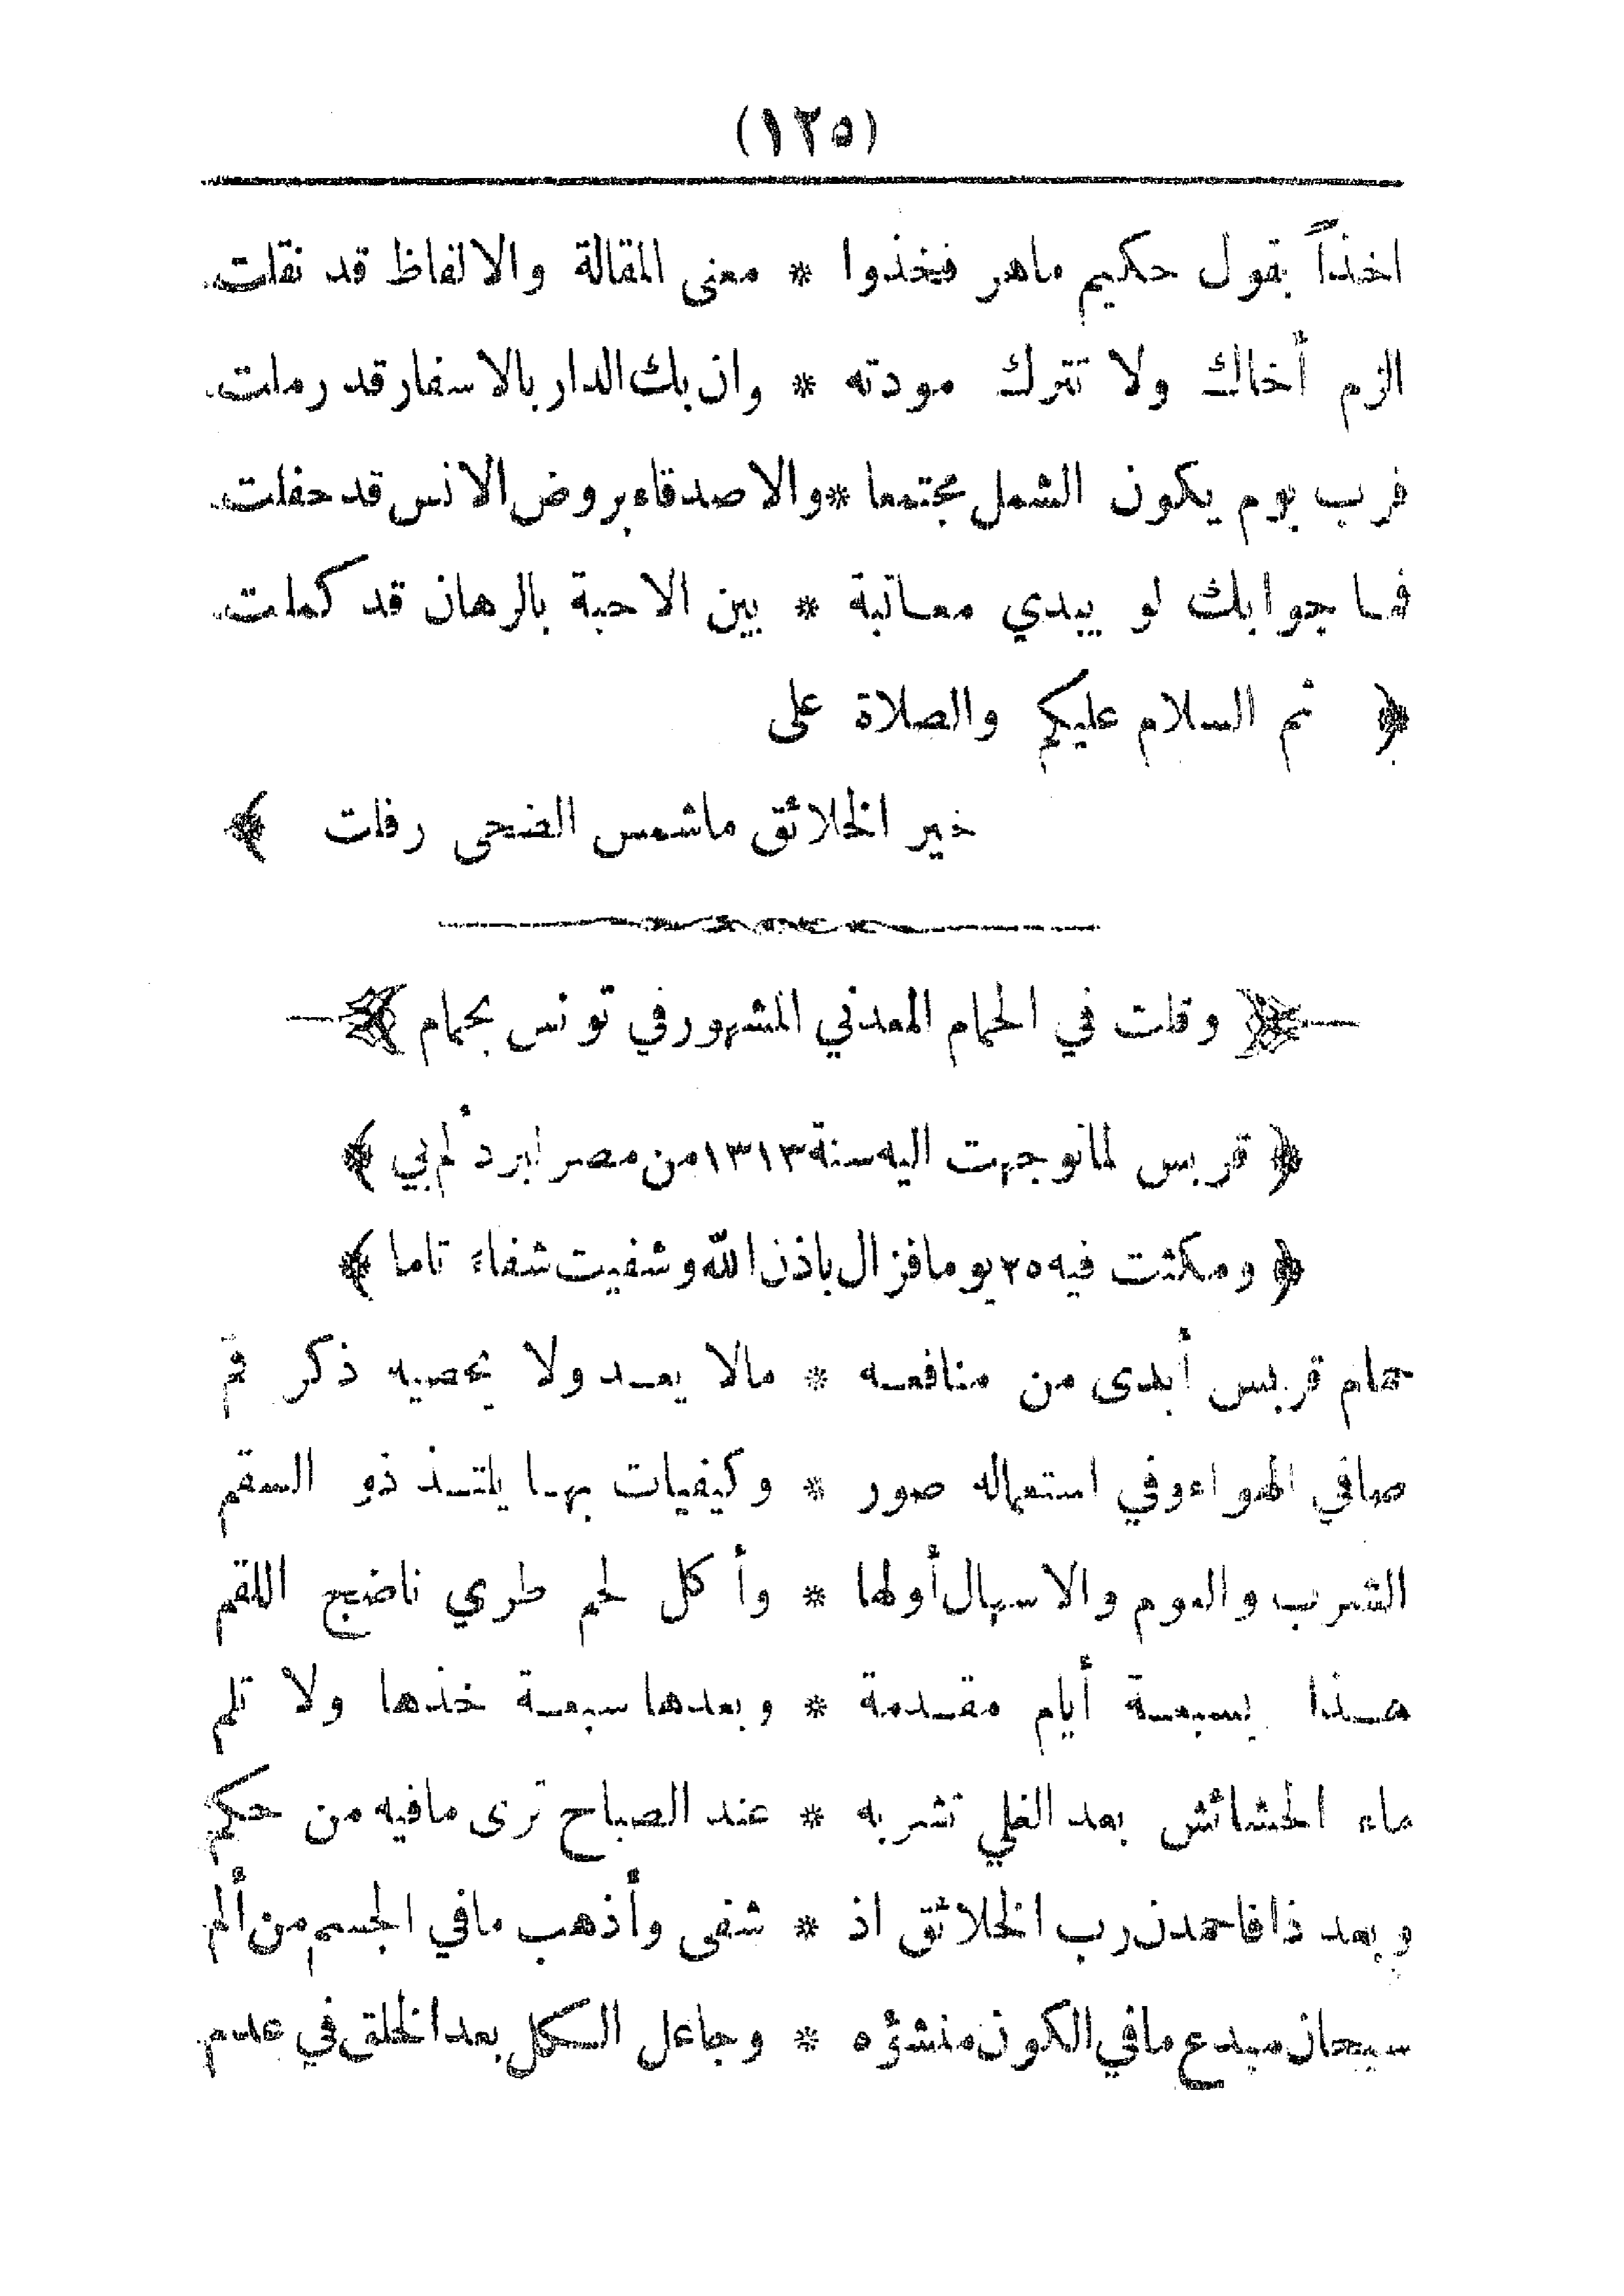 (١٢٥)
اخذاً بقول حكيم ماهر فخذوا * معنى المقالة والالفاظ قد نقلت
الزم أخاك ولا تترك مودته * وان بك الدار بالاسفار قد رملت
فرب يوم يكون الشمل مجتمعا * والاصدقاء بروض الانس قد حفلت
فما جوابك لو يبدي معاتبة * بين الاحبة بالرهان قد كملت
﴿ ثم السلام عليكم والصلاة على
خير الخلائق ماشمس الضحى رفلت ﴾
﴿ وقلت في الحمام المعدني المشهور في تونس بحمام ﴾
﴿ قربس لما توجهت اليه سنة ١٣١٣ من مصر لبرد ألم بي ﴾
﴿ ومكثت فيه ٣٥ يوما فزال باذن الله وشفيت شفاء تاما ﴾
حمام قربس أبدى من منافعه * مالا يعد ولا يحصيه ذكر فم
صافي الهواء وفي استعماله صور * وكيفيات بها يلتذ ذو السقم
الشرب والعوم والاسهال أولها * وأكل لحم طري ناضج اللقم
هذا بسبعة أيام مقدمة * وبعدها سبعة خذها ولا تلم
ماء الحشائش بعد الغلي تشربه * عند الصباح ترى مافيه من حكم
وبعد ذا فاحمدن رب الخلائق اذ * شفى وأذهب مافي الجسم من ألم
سبحان مبدع مافي الكون منشؤه * وجاعل الكل بعد الخلق في عدم